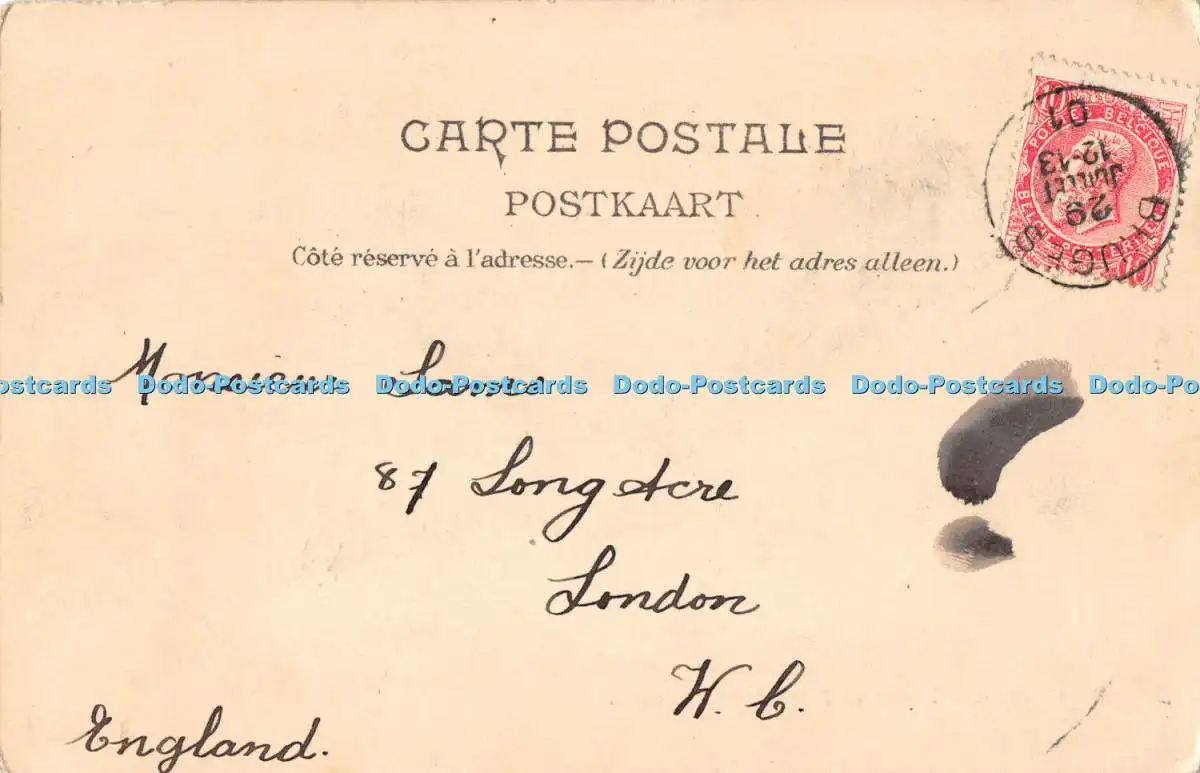 CARTE POSTALE
POSTKAART
Côté réservé à l'adresse.— (Zijde voor het adres alleen.)
10 10
POSTES BELGIQUE
BRUGES
29
JUILLET
12-13
01
Monsieur
Dodo-Postcards Dodo-Postcards Dodo-Postcards Dodo-Postcards
87 Long Acre
London
W. C.
England.